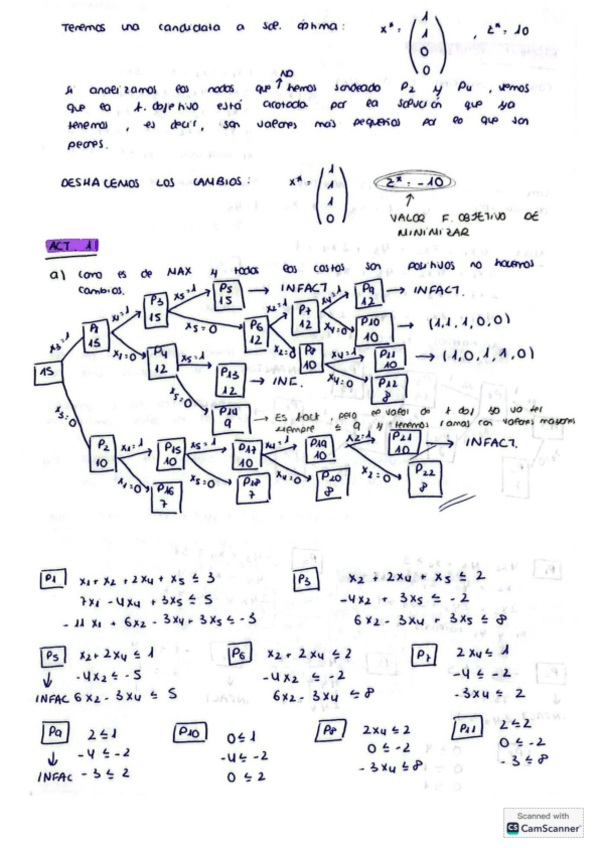 Tenemos una candidata a sol. óptima: x* = (1 1 0 0), z* = 10
Si analizamos los nodos que NO hemos sondeado P2 y P4, vemos
que la f. objetivo está acotada por la solución que ya
tenemos, es decir, son valores más pequeños por lo que son
peores.
DESHACEMOS LOS CAMBIOS: x* = (1 1 1 0) z* = -10
VALOR F. OBJETIVO DE
MINIMIZAR
ACT. 11
a) como es de MAX y todos los costos son positivos no hacemos
cambios.
15
x3=1 P1 15
x3=0 P2 10
x1=1 P3 15
x1=0 P4 12
x5=1 P5 15 → INFACT.
x5=0 P6 12
x2=1 P7 12
x2=0 P8 10
x4=1 P9 12 → INFACT.
x4=0 P10 10 → (1,1,1,0,0)
x4=1 P11 10 → (1,0,1,1,0)
x4=0 P12 8
x5=1 P13 12 → INF.
x5=0 P14 9 → Es fact, pero el valor de f obj ya va ser
siempre ≤ 9 y tenemos ramas con valores mayores
x1=1 P15 10
x1=0 P16 7
x5=1 P17 10
x5=0 P18 7
x4=1 P19 10
x4=0 P20 8
x2=1 P21 10 → INFACT.
x2=0 P22 8
P1 x1 + x2 + 2x4 + x5 ≤ 3
7x1 - 4x4 + 3x5 ≤ 5
- 11x1 + 6x2 - 3x4 + 3x5 ≤ -3
P3 x2 + 2x4 + x5 ≤ 2
-4x2 + 3x5 ≤ -2
6x2 - 3x4 + 3x5 ≤ 8
P5 x2 + 2x4 ≤ 1
↓ -4x2 ≤ -5
INFAC 6x2 - 3x4 ≤ 5
P6 x2 + 2x4 ≤ 2
-4x2 ≤ -2
6x2 - 3x4 ≤ 8
P7 2x4 ≤ 1
-4 ≤ -2
-3x4 ≤ 2
P9 2 ≤ 1
↓ -4 ≤ -2
INFAC -3 ≤ 2
P10 0 ≤ 1
-4 ≤ -2
0 ≤ 2
P8 2x4 ≤ 2
0 ≤ -2
-3x4 ≤ 8
P11 2 ≤ 2
0 ≤ -2
-3 ≤ 8
Scanned with
CS CamScanner